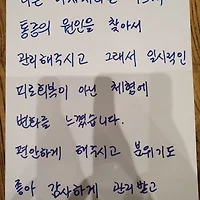 통증의 원인을 찾아서
관리해주시고 그래서 일시적인
피로회복이 아닌 체형에
변화를 느꼈습니다.
편안하게 해주시고 분위기도
좋아 감사하게 관리받고